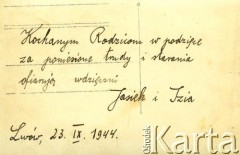 Kochanym Rodzicom w podzięce
za poniesione trudy i starania
ofiarują wdzięczni
Josiek i Izia
Lwów, 23. IX. 1944.
Ośrodek
Karta